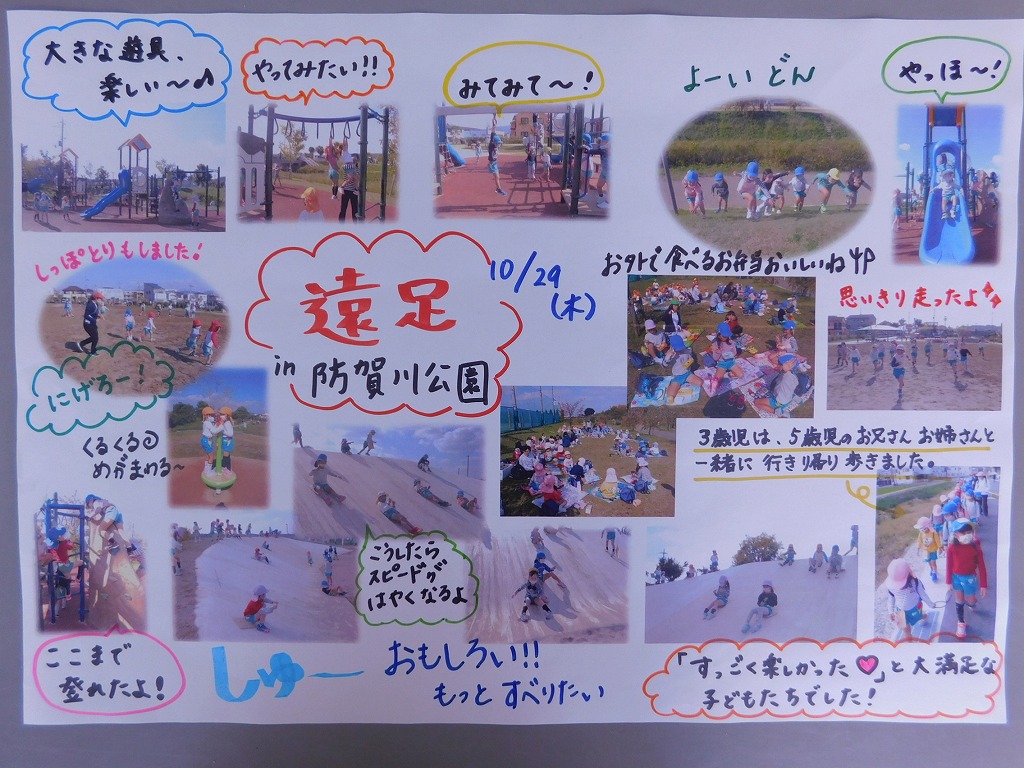 大きな遊具、
楽しい〜♪
やってみたい!!
みてみて〜!
よーい どん
やっほ〜!
しっぽとりもしました!
遠足
in 防賀川公園
10/29
(木)
お外で食べるお弁当おいしいね
思いきり走ったよ
にげろー!
くるくる
めがまわる〜
3歳児は、5歳児のお兄さん お姉さんと
一緒に 行き帰り 歩きました。
こうしたら
スピードが
はやくなるよ
ここまで
登れたよ!
しゅー
おもしろい!!
もっと すべりたい
「すっごく楽しかった♥」と大満足な
子どもたちでした!